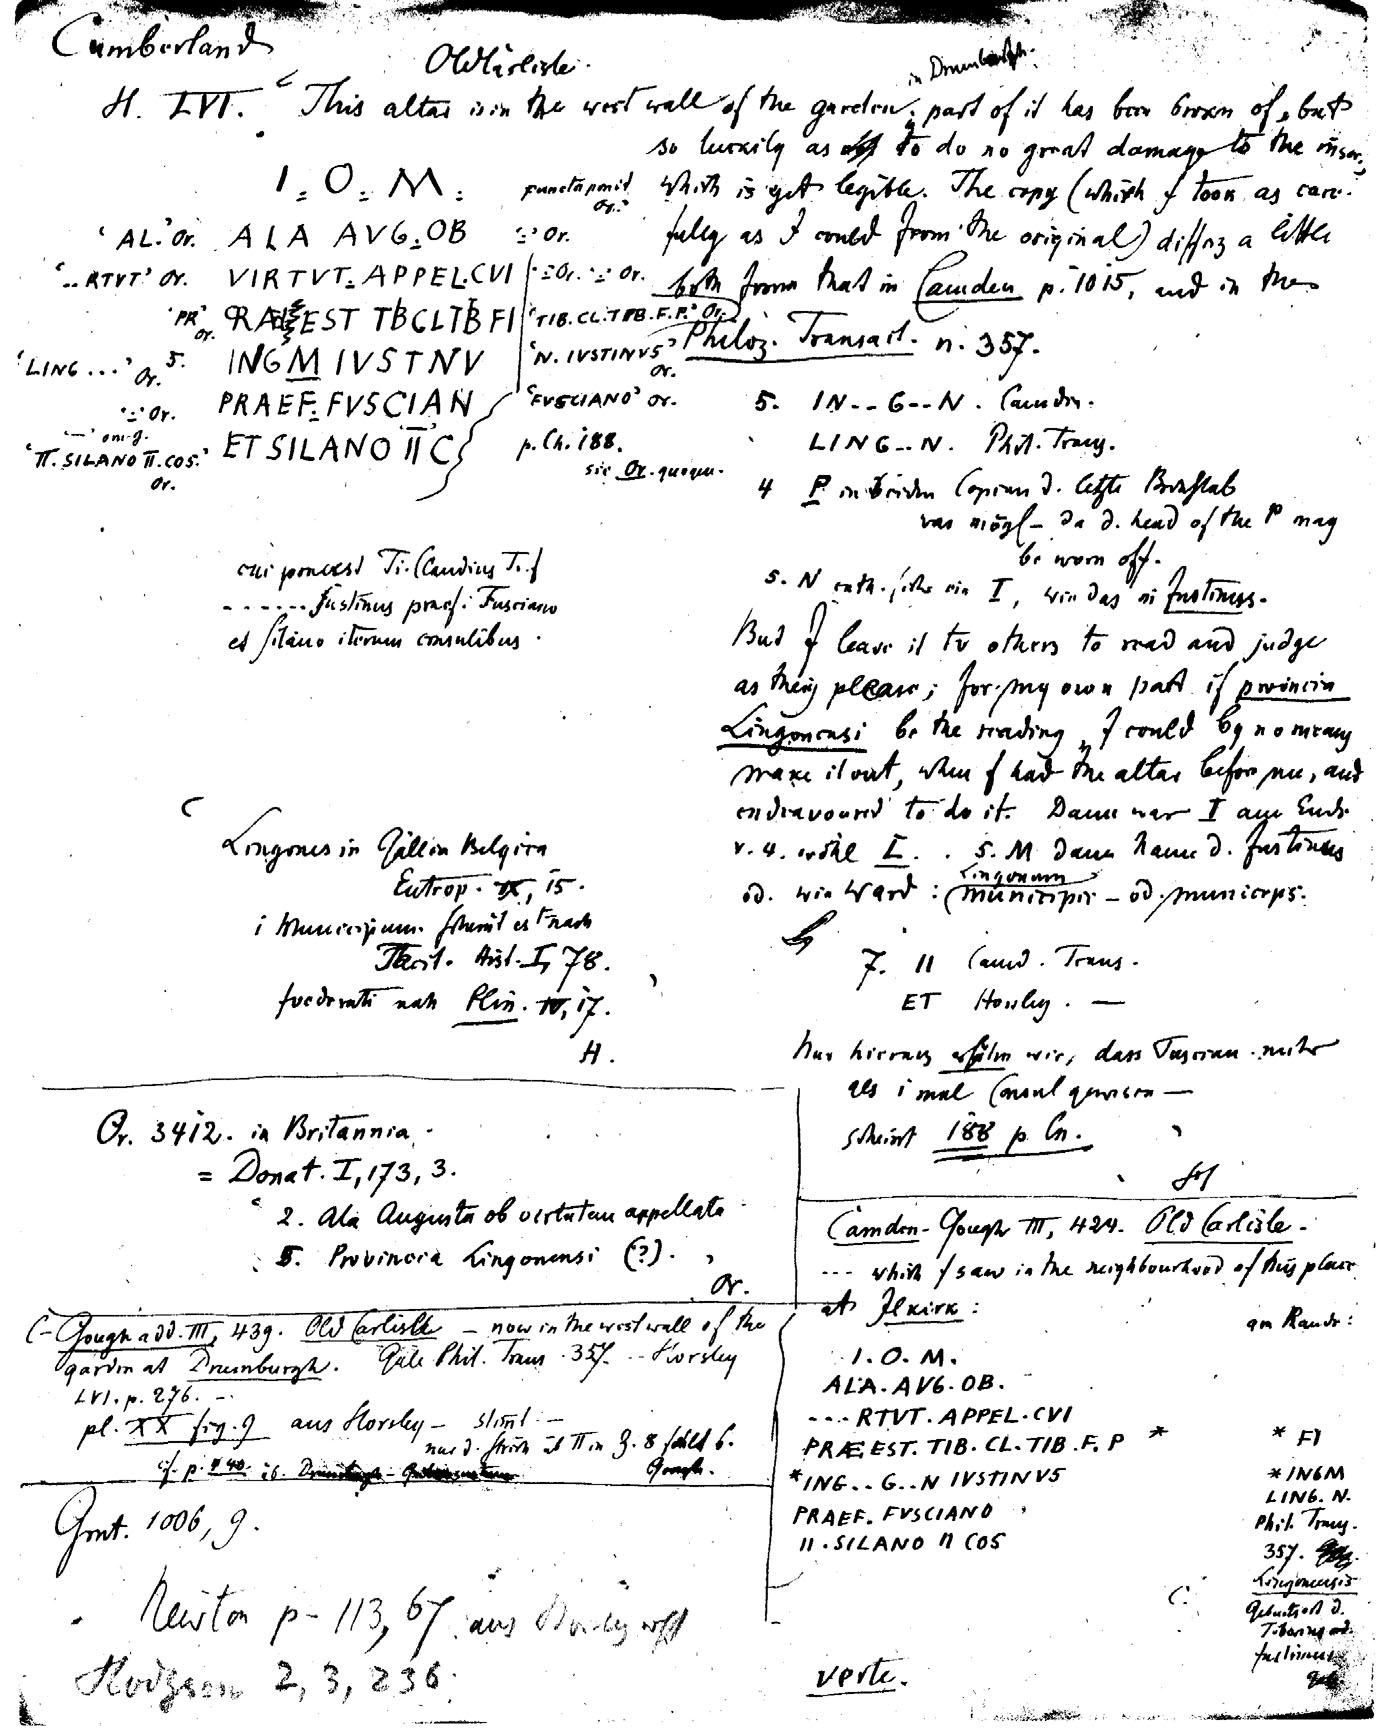 Cumberland
Old Carlisle.
in Drumburgh.
H. LVI. This altar is in the west wall of the garden; part of it has been broken of, but
so luckily as to do no great damage to the inscr.,
which is yet legible. The copy (which I took as care-
fully as I could from the original) differs a little
both from that in Camden p. 1015, and in the
Philos. Transact. n. 357.
I. O. M.
puncta omit. Or.
'AL.' Or. ALA AVG. OB Or.
'..RTVT' Or. VIRTVT. APPEL. CVI Or. Or.
'PR' Or. RAEEST TBCLTBFI 'TIB.CL.TIB.F.P.' Or.
'LING ...' Or. 5. INGM IVSTNV 'N. IVSTINVS' Or.
Or. PRAEF. FVSCIAN 'FVSCIANO' Or.
'II. SILANO II. COS.' Or. ET SILANO II C p. Ch. 188.
sic Or. quoque.
5. IN--G--N. Camden.
LING--N. Phil. Trans.
4 P in beiden Copien d. letzte Buchstab
was mögl - da d. head of the P may
be worn off.
5. N enth. ein I, wie das in Justinus.
cui praeest Ti. Claudius Ti. f
------ Justinus praef. Fusciano
et Silano iterum consulibus.
But I leave it to others to read and judge
as they please; for my own part if provincia
Lingonensi be the reading, I could by no means
make it out, when I had the altar before me, and
endeavoured to do it. Dann war I am Ende
v. 4. wohl L. . 5. M dann Name d. Justinus
od. wie Ward: (Lingonum municipii - od. municeps.
Lingones in Gallia Belgica
Eutrop. IX, 15.
1 Municipium scheint es nach
Tacit. Hist. I, 78.
foederati nach Plin. IV, 17.
H.
7. II Camd. Trans.
ET Horsley. —
Nur hieraus wir, dass Fuscian mehr
als 1 mal Consul gewesen —
scheint 188 p. Cn.
Or. 3412. in Britannia.
= Donat. I, 173, 3.
2. Ala Augusta ob virtutem appellata
5. Provincia Lingonensi (?).
Or.
C-Gough add. III, 439. Old Carlisle - now in the west wall of the
garden at Drumburgh. Gale Phil. Trans. 357. -- Horsley
LVI. p. 276. -
pl. XX fig. 9 aus Horsley - stimt -
nur d. Strich üb II in Z. 8 fehlt b.
Gough.
Grut. 1006, 9.
Newton p. 113, 67 aus Horsley
Hodgson 2, 3, 236.
Camden-Gough III, 424. Old Carlisle.
--- which I saw in the neighbourhood of this place
at Ilkirk:
am Rande:
I. O. M.
ALA. AVG. OB.
---RTVT. APPEL. CVI
PRÆEST. TIB. CL. TIB. F. P * * FI
*ING..G..N IVSTINVS * INGM
LING. N.
PRAEF. FVSCIANO Phil. Trans.
II. SILANO II COS 357.
Lingonensis
Geburtsort d.
Justinus
verte.